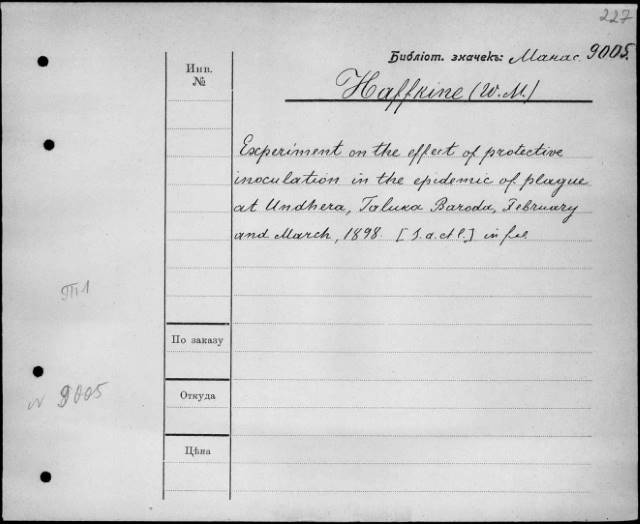 227
Библіот. значекъ: Манас. 9005.
Инв.
№
Haffkine (W. M.)
Experiment on the effect of protective
inoculation in the epidemic of plague
at Undhera, Taluka Baroda, February
and March, 1898. [S. a. et l.] in fol
Тп1
По заказу
№ 9005
Откуда
Цѣна